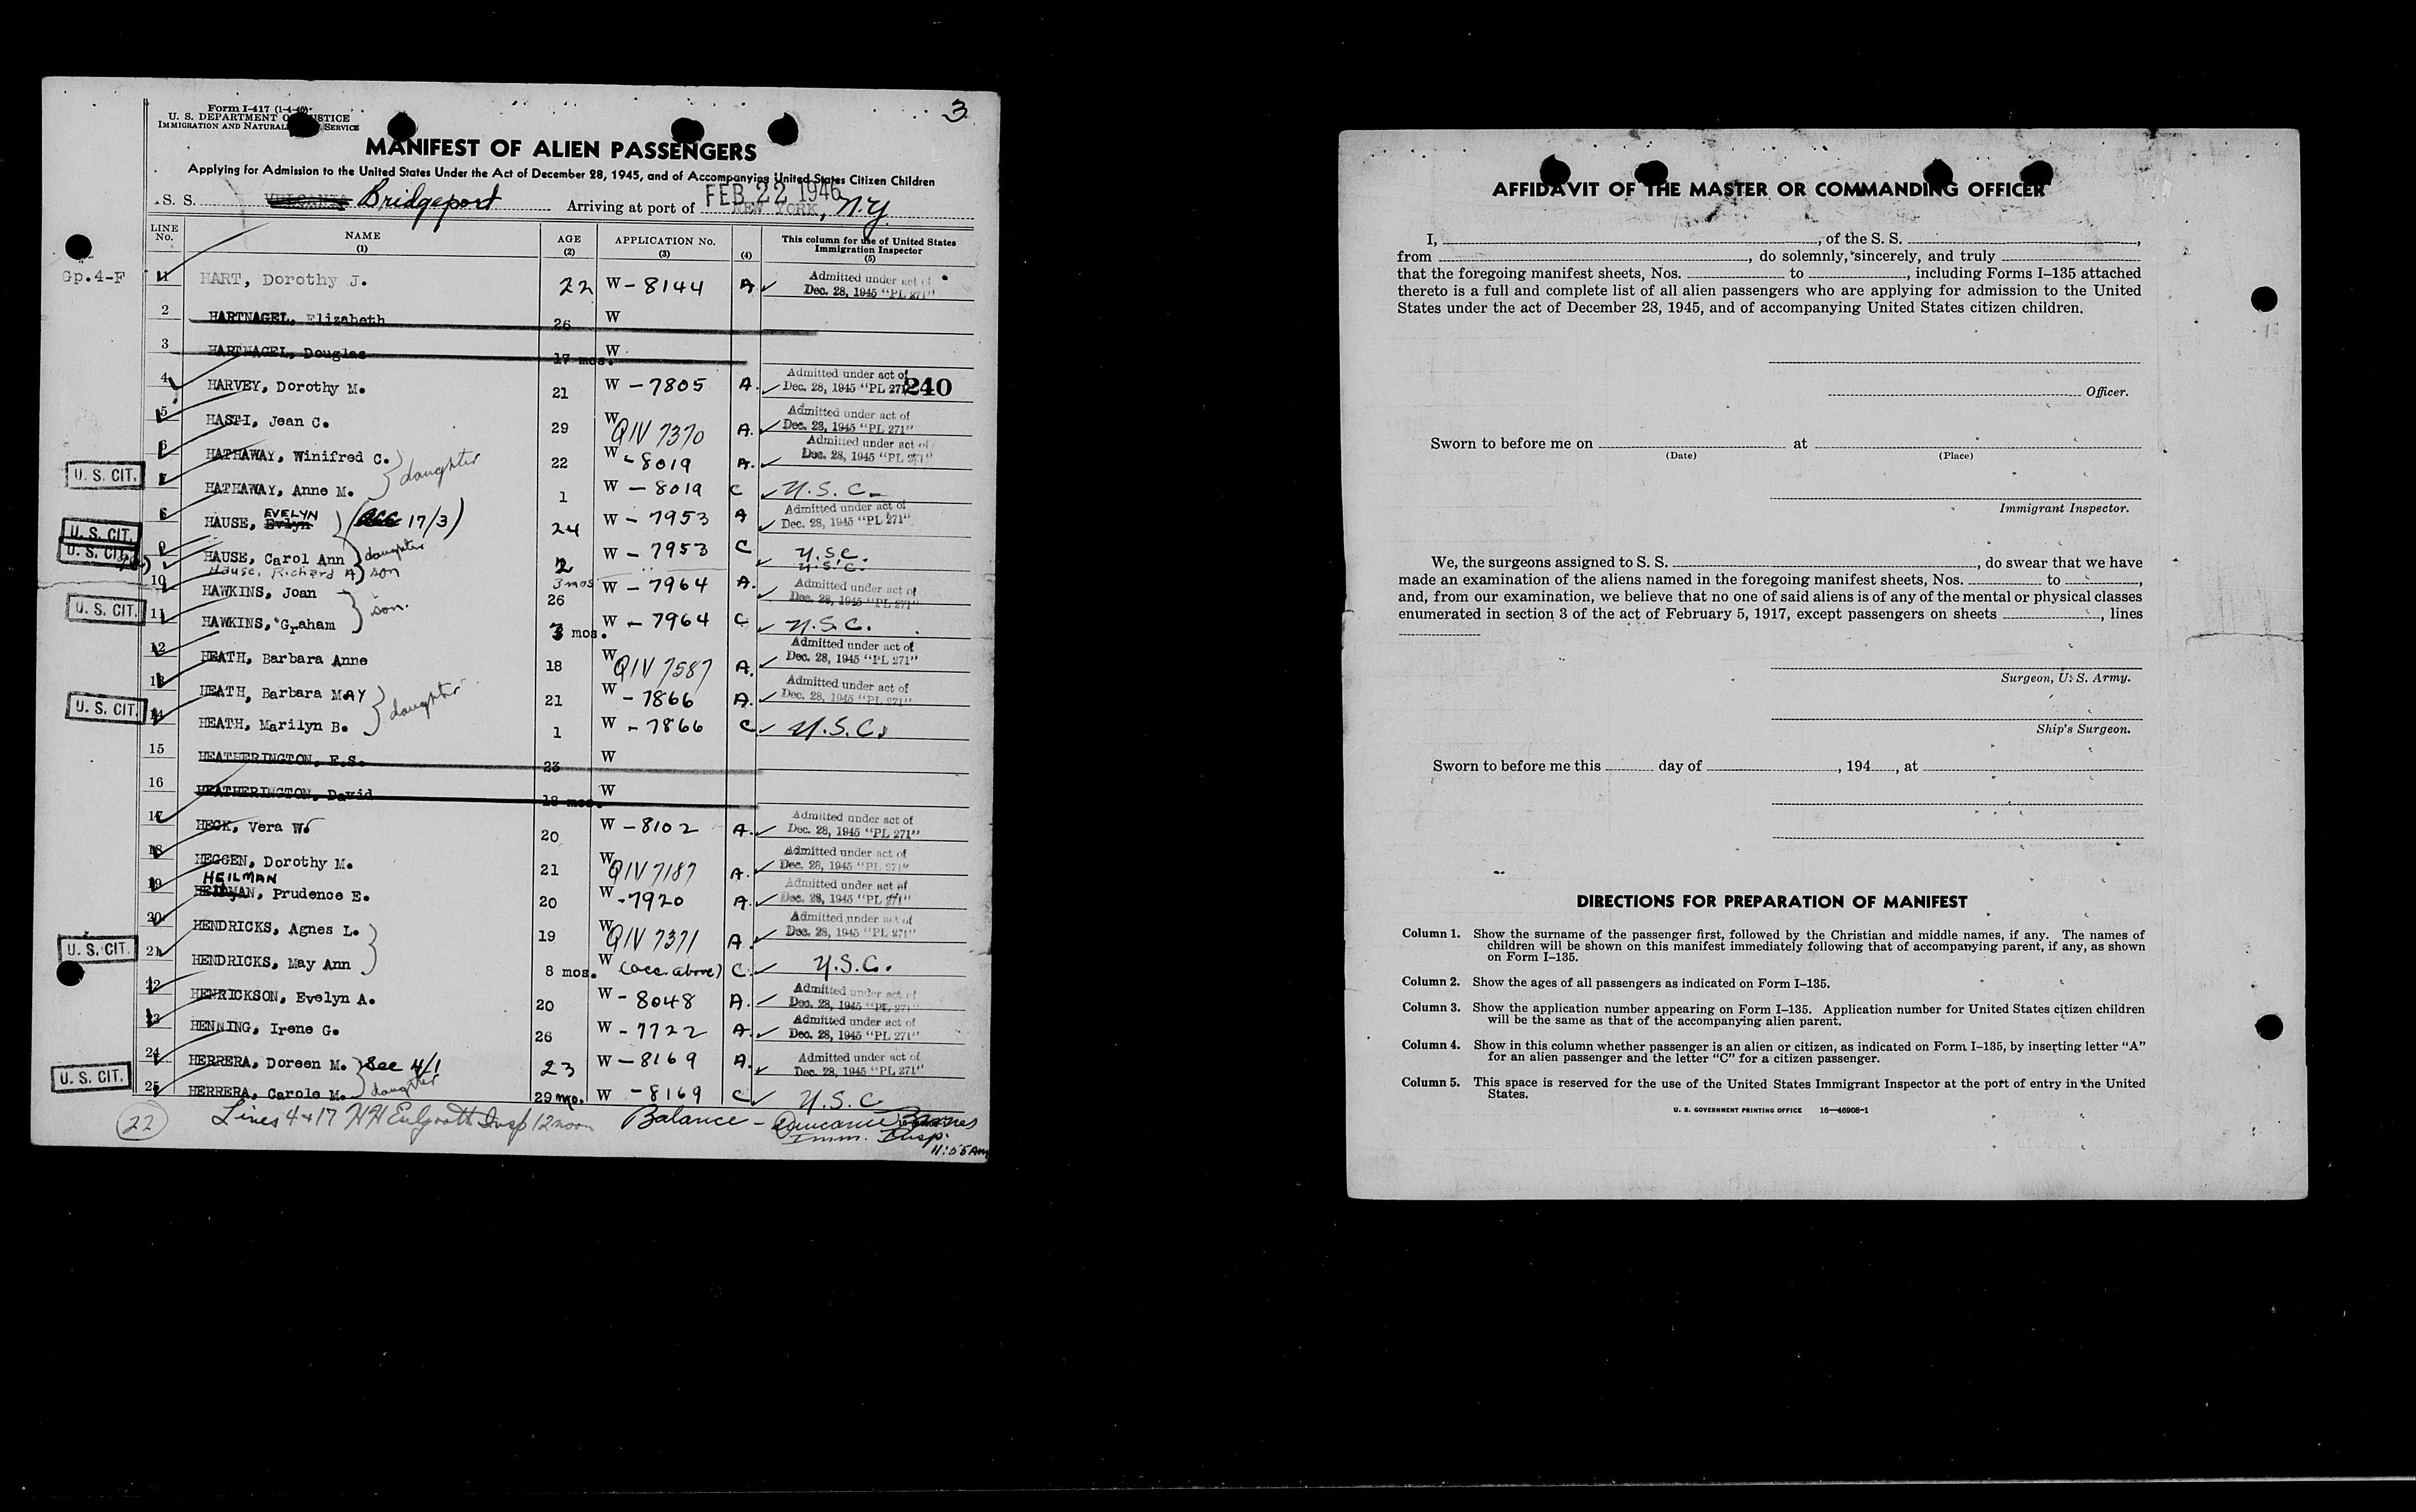 3
Form I-417 (1-4-46)
U. S. DEPARTMENT OF JUSTICE
IMMIGRATION AND NATURALIZATION SERVICE
MANIFEST OF ALIEN PASSENGERS
Applying for Admission to the United States Under the Act of December 28, 1945, and of Accompanying United States Citizen Children
S. S. VULCANIA Bridgeport Arriving at port of FEB 22 1946 NEW YORK, N.Y.
LINE No. NAME (1) AGE (2) APPLICATION No. (3) (4) This column for use of United States Immigration Inspector (5)
Gp.4-F 1 HART, Dorothy J. 22 W - 8144 A Admitted under act of Dec. 28, 1945 "PL 271"
2 HARTNAGEL, Elizabeth 26 W
3 HARTNAGEL, Douglas 17 mos. W
4 HARVEY, Dorothy M. 21 W - 7805 A. Admitted under act of Dec. 28, 1945 "PL 271" 240
5 HASTI, Jean C. 29 W QIV 7370 A. Admitted under act of Dec. 28, 1945 "PL 271"
6 HATHAWAY, Winifred C. 22 W - 8019 A. Admitted under act of Dec. 28, 1945 "PL 271"
U. S. CIT. 7 HATHAWAY, Anne M. daughter 1 W - 8019 C U.S.C.
8 HAUSE, Evlyn EVELYN (acc 17/3) 24 W - 7953 A Admitted under act of Dec. 28, 1945 "PL 271"
U. S. CIT. 9 HAUSE, Carol Ann daughter 2 W - 7953 C U.S.C.
U. S. CIT. Hause, Richard A son 3 mos U.S.C.
10 HAWKINS, Joan 26 W - 7964 A. Admitted under act of Dec. 28, 1945 "PL 271"
U. S. CIT. 11 HAWKINS, Graham son. 3 mos. W - 7964 C U.S.C.
12 HEATH, Barbara Anne 18 W QIV 7587 A. Admitted under act of Dec. 28, 1945 "PL 271"
13 HEATH, Barbara MAY 21 W - 7866 A. Admitted under act of Dec. 28, 1945 "PL 271"
U. S. CIT. 14 HEATH, Marilyn B. daughter 1 W - 7866 C U.S.C.
15 HEATHERINGTON, E.S. 23 W
16 HEATHERINGTON, David 18 mos. W
17 HECK, Vera W. 20 W - 8102 A. Admitted under act of Dec. 28, 1945 "PL 271"
18 HEGGEN, Dorothy M. 21 W QIV 7187 A. Admitted under act of Dec. 28, 1945 "PL 271"
19 HEILMAN, Prudence E. 20 W -7920 A. Admitted under act of Dec. 28, 1945 "PL 271"
20 HENDRICKS, Agnes L. 19 W QIV 7371 A. Admitted under act of Dec. 28, 1945 "PL 271"
U. S. CIT. 21 HENDRICKS, May Ann 8 mos. W (acc. above) C. U.S.C.
22 HENRICKSON, Evelyn A. 20 W - 8048 A. Admitted under act of Dec. 28, 1945 "PL 271"
23 HENNING, Irene G. 26 W - 7722 A. Admitted under act of Dec. 28, 1945 "PL 271"
24 HERRERA, Doreen M. See 4/1 23 W - 8169 A. Admitted under act of Dec. 28, 1945 "PL 271"
U. S. CIT. 25 HERRERA, Carole M. daughter 29 mo. W - 8169 C U.S.C
22 Lines 4 + 17 Insp 12 noon Balance - Imm. Insp. 11:05 AM
AFFIDAVIT OF THE MASTER OR COMMANDING OFFICER
I, , of the S. S. ,
from , do solemnly, sincerely, and truly
that the foregoing manifest sheets, Nos. to , including Forms I–135 attached
thereto is a full and complete list of all alien passengers who are applying for admission to the United
States under the act of December 28, 1945, and of accompanying United States citizen children.
Officer.
Sworn to before me on at
(Date) (Place)
Immigrant Inspector.
We, the surgeons assigned to S. S. , do swear that we have
made an examination of the aliens named in the foregoing manifest sheets, Nos. to ,
and, from our examination, we believe that no one of said aliens is of any of the mental or physical classes
enumerated in section 3 of the act of February 5, 1917, except passengers on sheets , lines
Surgeon, U. S. Army.
Ship's Surgeon.
Sworn to before me this day of , 194 , at
DIRECTIONS FOR PREPARATION OF MANIFEST
Column 1. Show the surname of the passenger first, followed by the Christian and middle names, if any. The names of
children will be shown on this manifest immediately following that of accompanying parent, if any, as shown
on Form I–135.
Column 2. Show the ages of all passengers as indicated on Form I–135.
Column 3. Show the application number appearing on Form I–135. Application number for United States citizen children
will be the same as that of the accompanying alien parent.
Column 4. Show in this column whether passenger is an alien or citizen, as indicated on Form I–135, by inserting letter "A"
for an alien passenger and the letter "C" for a citizen passenger.
Column 5. This space is reserved for the use of the United States Immigrant Inspector at the port of entry in the United
States.
U. S. GOVERNMENT PRINTING OFFICE 16—46908-1